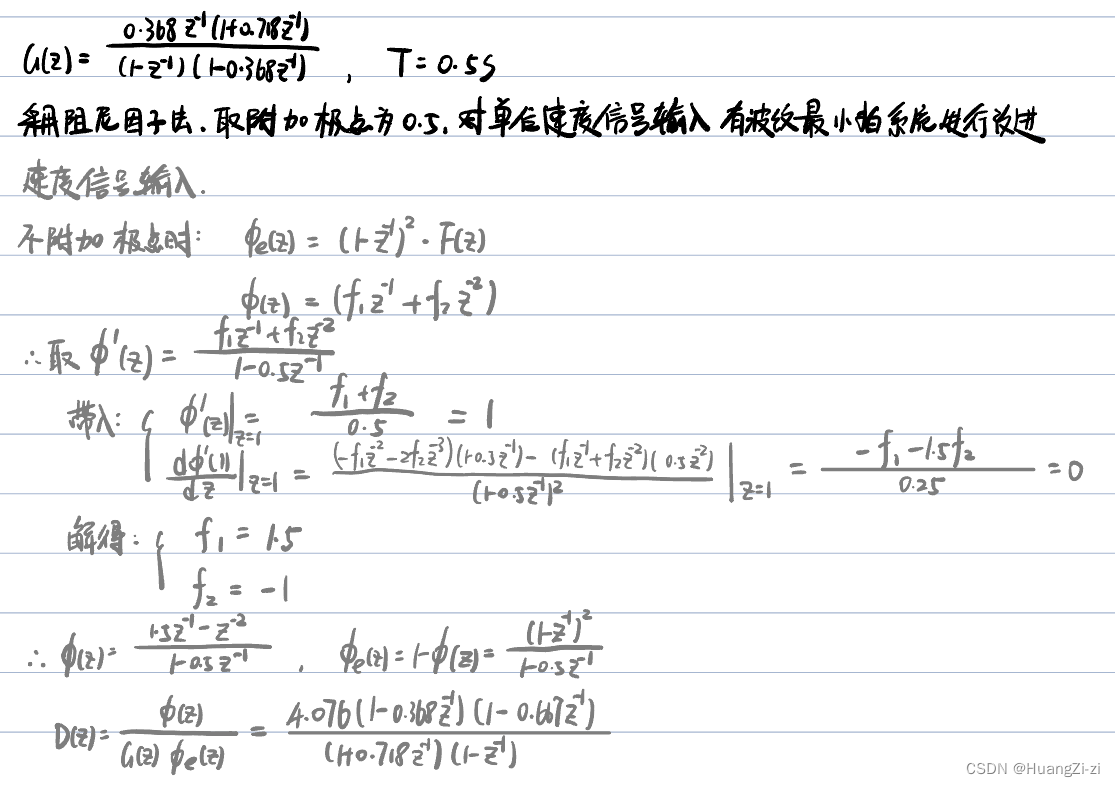 G(z) = 0.368 z⁻¹(1+0.718z⁻¹) / (1-z⁻¹)(1-0.368z⁻¹) , T = 0.5s
采用阻尼因子法.取附加极点为0.5,对单位速度信号输入有波纹最小拍系统进行改进
速度信号输入.
不附加极点时: ϕe(z) = (1-z⁻¹)² · F(z)
ϕ(z) = (f₁z⁻¹ + f₂z⁻²)
∴ 取 ϕ'(z) = f₁z⁻¹+f₂z⁻² / 1-0.5z⁻¹
带入: { ϕ'(z)|z=1 = f₁+f₂ / 0.5 = 1
dϕ'(1)/dz |z=1 = (-f₁z⁻²-2f₂z⁻³)(1-0.5z⁻¹) - (f₁z⁻¹+f₂z⁻²)(0.5z⁻²) / (1-0.5z⁻¹)² |z=1 = -f₁-1.5f₂ / 0.25 = 0
解得: { f₁ = 1.5
f₂ = -1
∴ ϕ(z) = 1.5z⁻¹-z⁻² / 1-0.5z⁻¹ , ϕe(z) = 1-ϕ(z) = (1-z⁻¹)² / 1-0.5z⁻¹
D(z) = ϕ(z) / G(z) ϕe(z) = 4.076(1-0.368z⁻¹)(1-0.667z⁻¹) / (1+0.718z⁻¹)(1-z⁻¹)
CSDN @HuangZi-zi